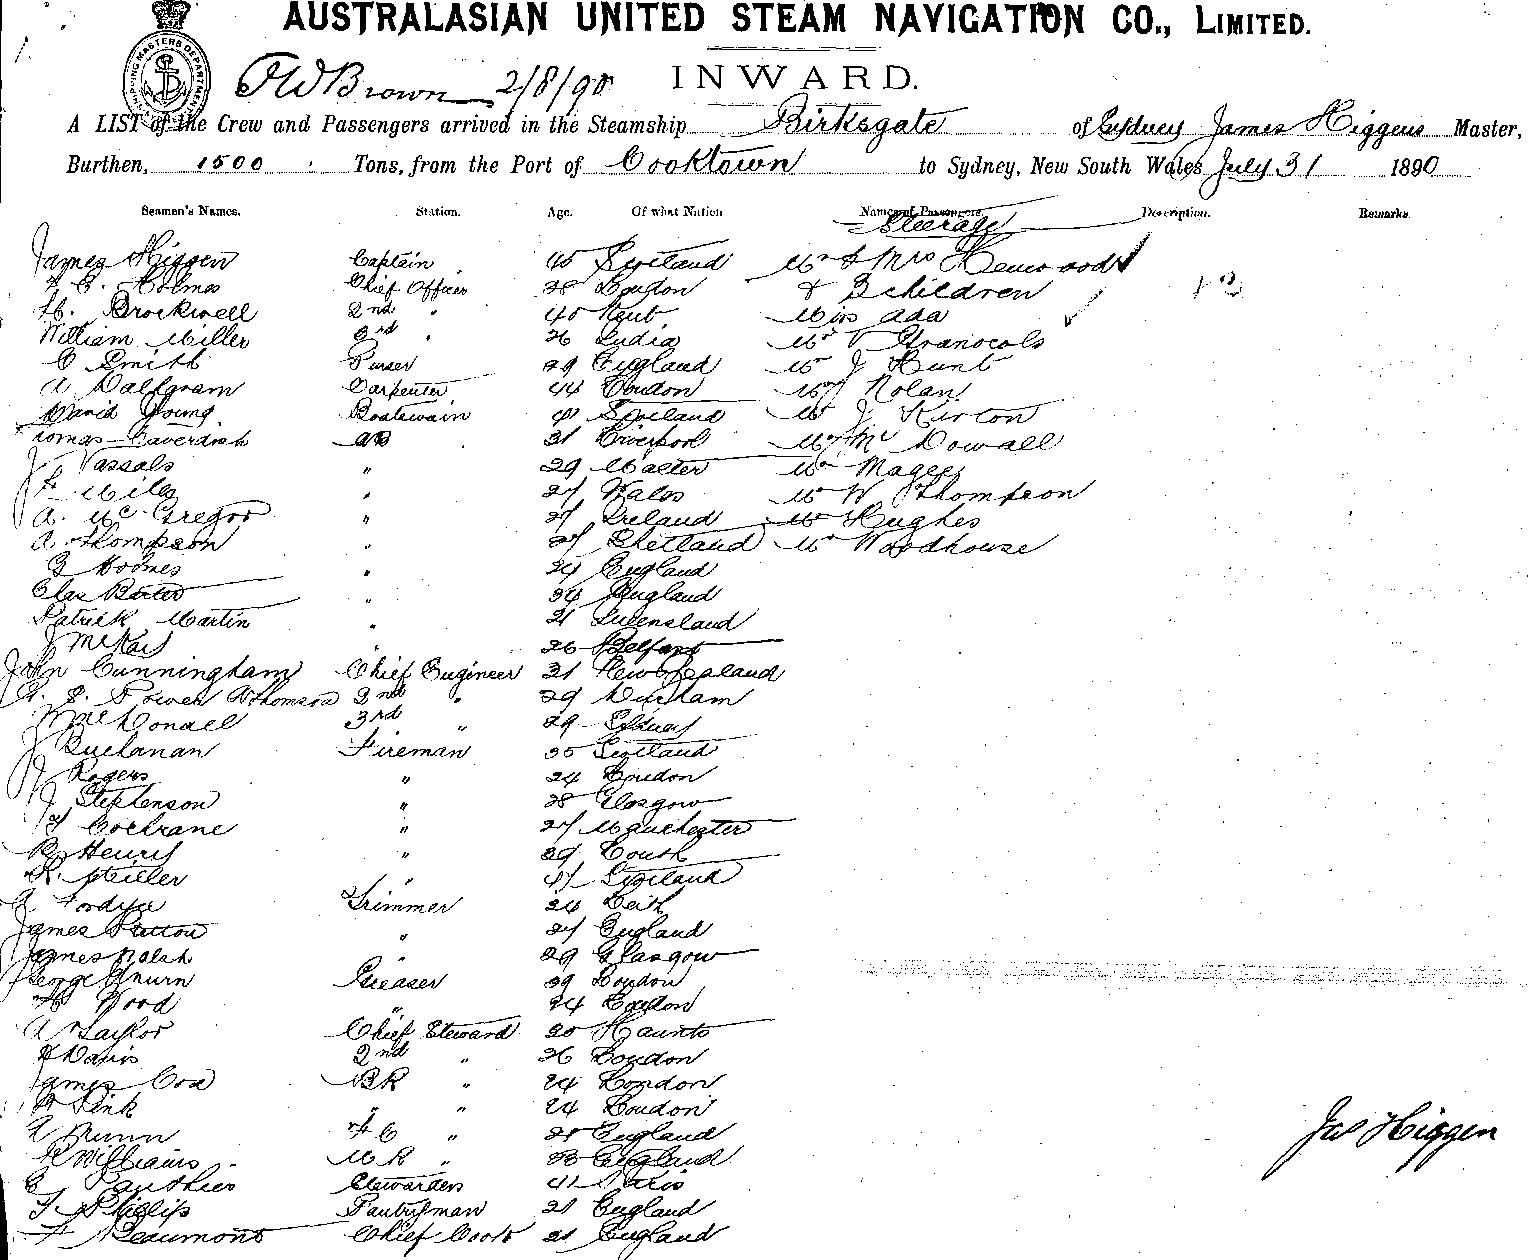 AUSTRALASIAN UNITED STEAM NAVIGATION CO., LIMITED.
SHIPPING MASTERS DEPARTMENT
Brown 2/8/90 INWARD.
A LIST of the Crew and Passengers arrived in the Steamship Birksgate of Sydney James Higgens Master,
Burthen, 1500 Tons, from the Port of Cooktown to Sydney, New South Wales July 31 1890
Seamen's Names. Station. Age. Of what Nation Names of Passengers Description. Remarks.
Steerage
James Higgen Captain 45 Scotland Mr & Mrs Henwood
Holmes Chief Officer 28 London & 3 children
H. Brockwell 2nd " 40 Kent Miss Ada
William Miller 3rd " 26 India Mr
C Smith Purser 29 England Mr J Hunt
A Dalfgram Carpenter 44 London Mr Nolan
David Young Boatswain 41 Scotland Mr J Kirton
Thomas Caverdish AB 31 Liverpool Mr McDowall
J Vassals " 29 Mr Magee
Miles " 27 Wales Mr W Thompson
A. McGregor " 27 Ireland Mr Hughes
A. Thompson " 27 Shetland Mr Woodhouse
" 24 England
" 34 England
Patrick Martin " 21 Queensland
J McKay " 26 Belfast
John Cunningham Chief Engineer 31 New Zealand
2nd " 29 Durham
J McDonall 3rd " 29 Sydney
J Buchanan Fireman 35 Scotland
J Rogers " 24 London
J Stephenson " 28 Glasgow
Cochrane " 27 Manchester
R Henry " 39 Louth
" 41 Scotland
Trimmer 24 Leith
James " 27 England
James Walsh " 29 Glasgow
George Greaser 39 London
Wood " 24 London
A Taylor Chief Steward 30 Haunts
Davis 2nd " 26 London
James Cox BR " 24 London
Pink " " 24 London
Munn FC " 21 England
Williams MR " 23 England
Stewardess 41 Paris
Phillip Pantryman 21 England
F Beaumont Chief Cook 21 England
Jas Higgen